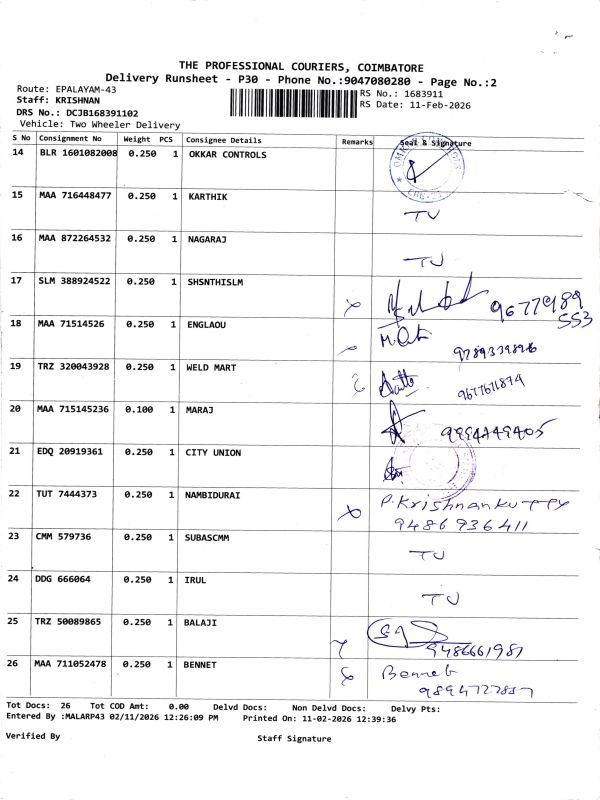 THE PROFESSIONAL COURIERS, COIMBATORE
Delivery Runsheet - P30 - Phone No.:9047080280 - Page No.:2
Route: EPALAYAM-43
RS No.: 1683911
Staff: KRISHNAN
RS Date: 11-Feb-2026
DRS No.: DCJB168391102
Vehicle: Two Wheeler Delivery
S No Consignment No Weight PCS Consignee Details Remarks Seal & Signature
14 BLR 1601082008 0.250 1 OKKAR CONTROLS
15 MAA 716448477 0.250 1 KARTHIK
TU
16 MAA 872264532 0.250 1 NAGARAJ
TU
17 SLM 388924522 0.250 1 SHSNTHISLM
9677989
553
18 MAA 71514526 0.250 1 ENGLAOU
19 TRZ 320043928 0.250 1 WELD MART
9677671874
20 MAA 715145236 0.100 1 MARAJ
21 EDQ 20919361 0.250 1 CITY UNION
22 TUT 7444373 0.250 1 NAMBIDURAI
P.Krishnankutty
9486936411
23 CMM 579736 0.250 1 SUBASCMM
TU
24 DDG 666064 0.250 1 IRUL
TU
25 TRZ 50089865 0.250 1 BALAJI
9486661981
26 MAA 711052478 0.250 1 BENNET
Bennet
Tot Docs: 26 Tot COD Amt: 0.00 Delvd Docs: Non Delvd Docs: Delvy Pts:
Entered By :MALARP43 02/11/2026 12:26:09 PM Printed On: 11-02-2026 12:39:36
Verified By
Staff Signature